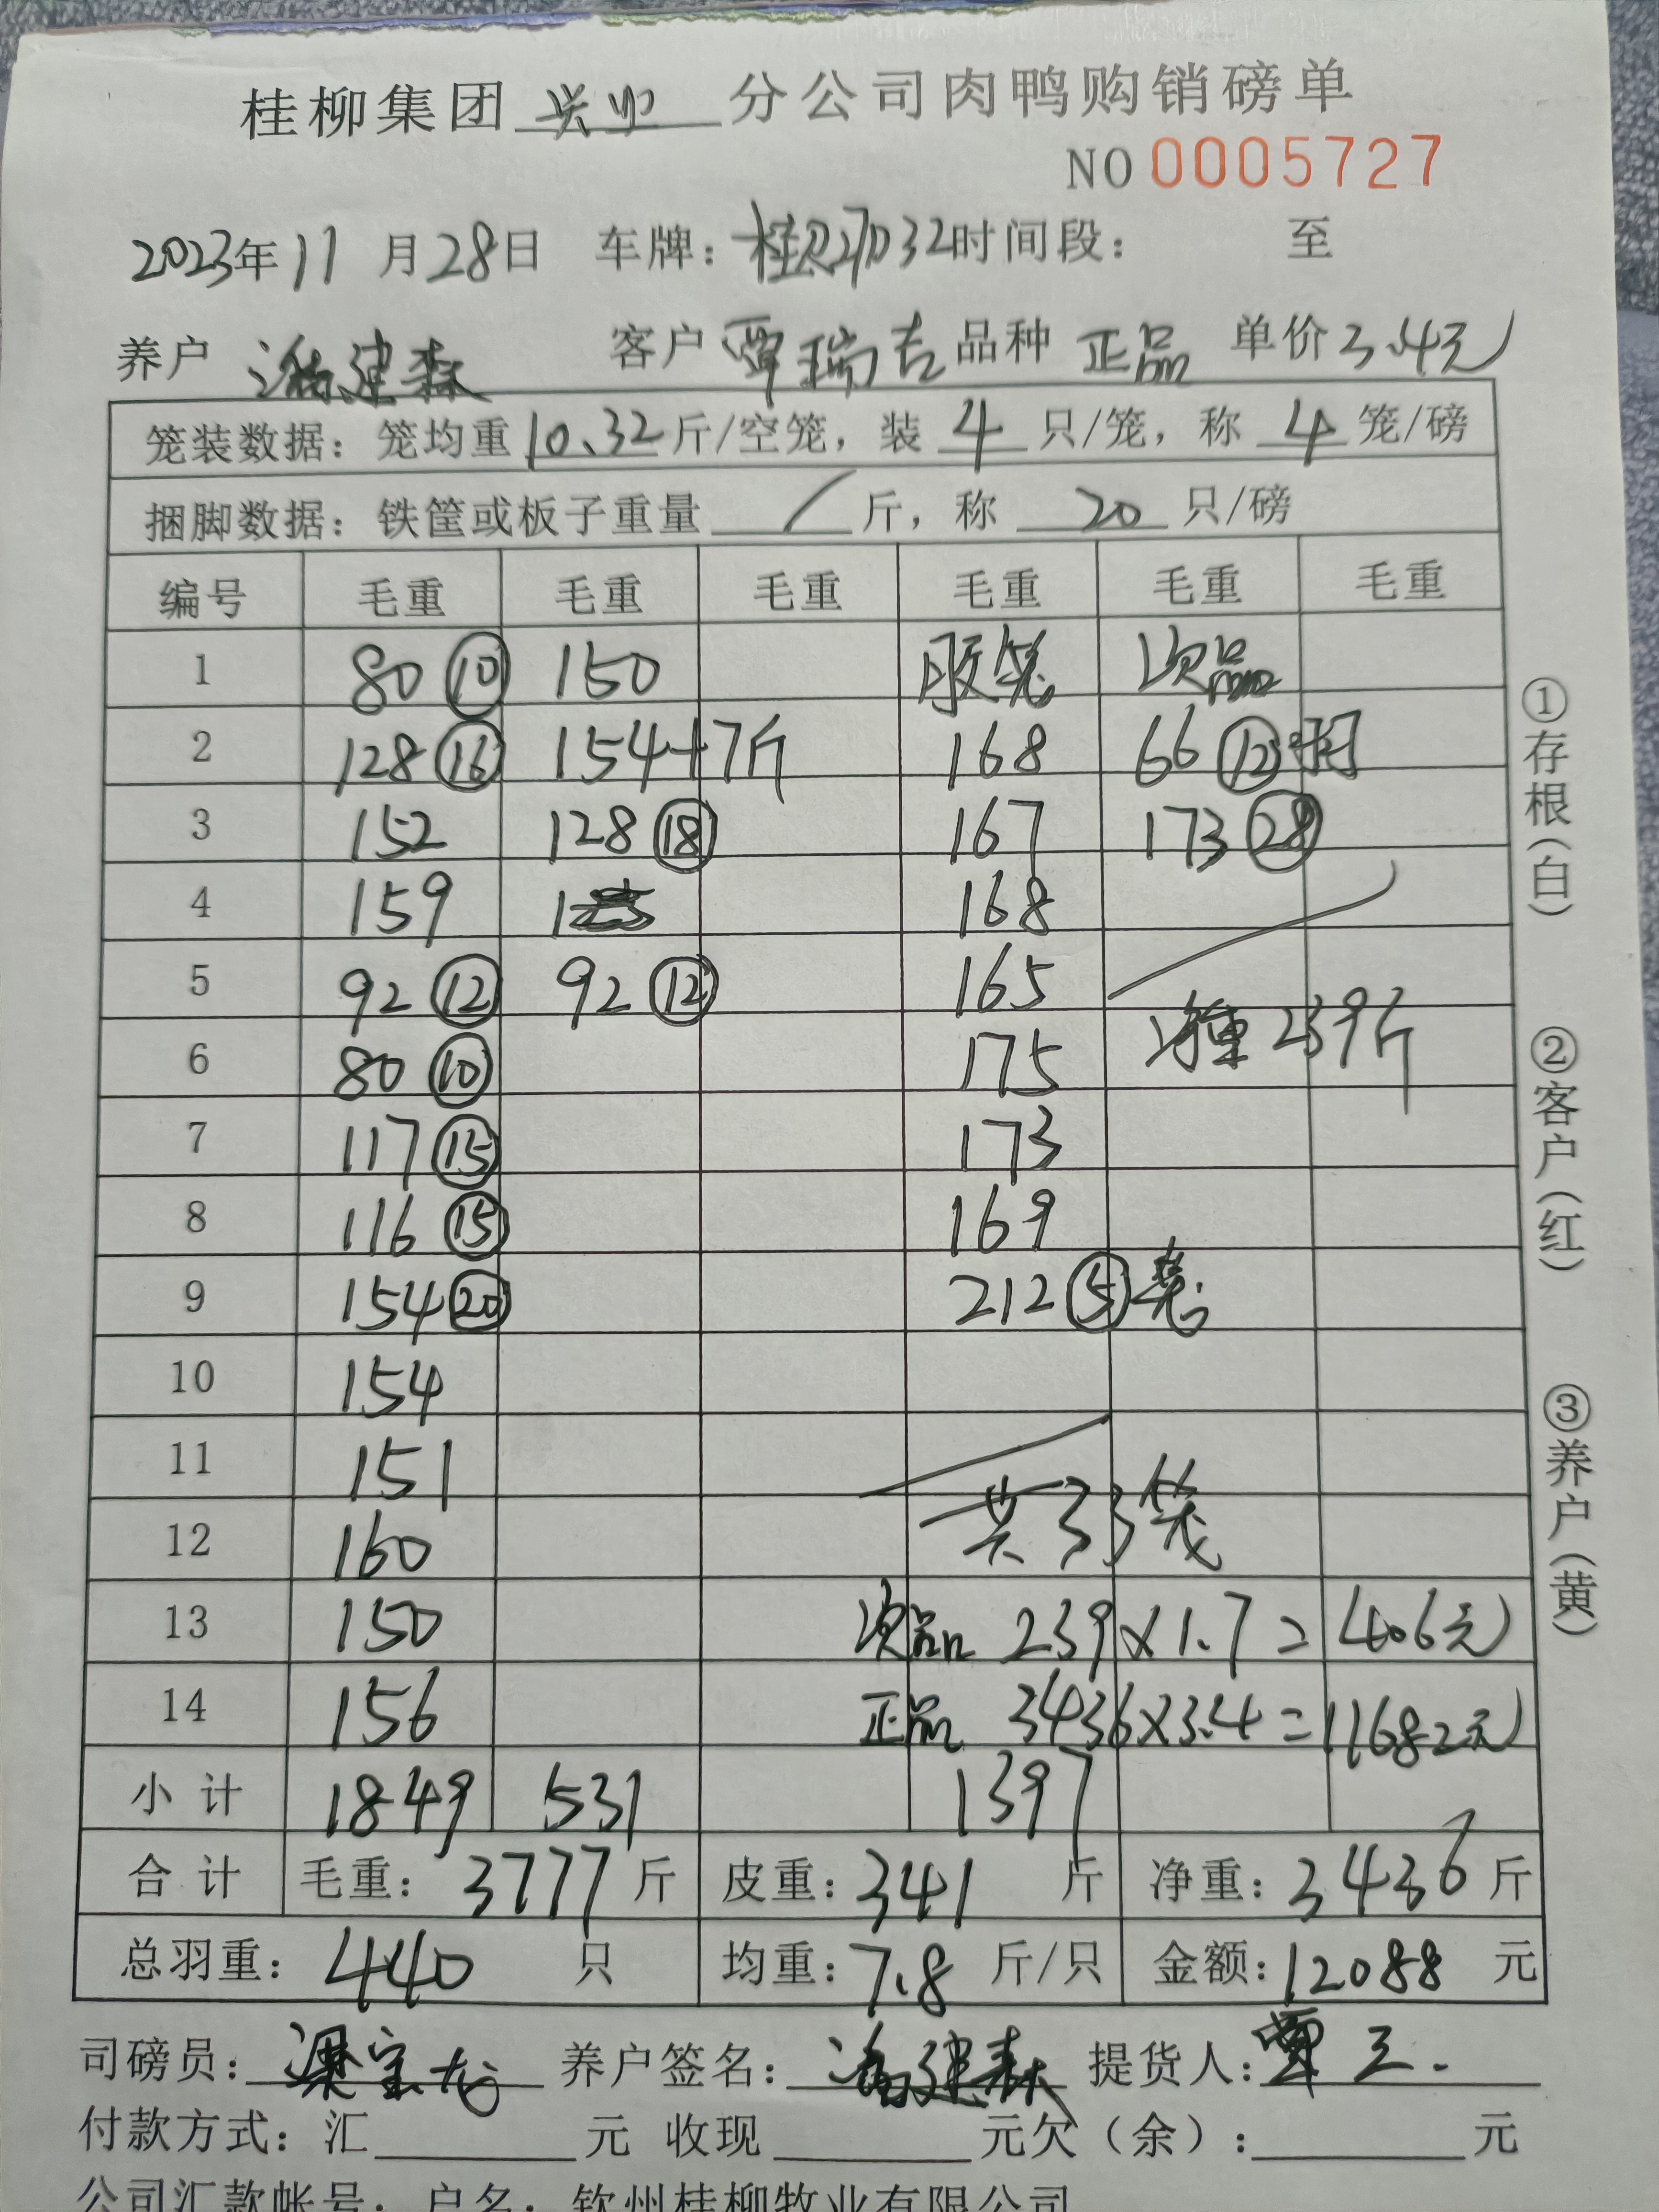 桂柳集团 兴业 分公司肉鸭购销磅单
NO 0005727
2023年11月28日 车牌: 桂R27032 时间段: 至
养户 潘建森 客户 覃瑞吉 品种 正品 单价 3.4元
笼装数据: 笼均重 10.32 斤/空笼, 装 4 只/笼, 称 4 笼/磅
捆脚数据: 铁筐或板子重量 / 斤, 称 20 只/磅
编号 毛重 毛重 毛重 毛重 毛重 毛重
1 80 ⑩ 150 胶笼 次品
2 128 ⑯ 154+7斤 168 66 ⑫
3 152 128 ⑱ 167 173 ㉘
4 159 168
5 92 ⑫ 92 ⑫ 165
6 80 ⑩ 175 净重 239斤
7 117 ⑮ 173
8 116 ⑮ 169
9 154 ⑳ 212 ⑤笼
10 154
11 151
12 160 共33笼
13 150 次品 239×1.7=406元
14 156 正品 3436×3.4=11682元
小计 1849 531 1397
合计 毛重: 3777 斤 皮重: 341 斤 净重: 3436 斤
总羽重: 440 只 均重: 7.8 斤/只 金额: 12088 元
司磅员: 梁宝龙 养户签名: 潘建森 提货人: 覃三.
付款方式: 汇 元 收现 元欠(余): 元
公司汇款帐号: 户名: 钦州桂柳牧业有限公司
①存根(白)
②客户(红)
③养户(黄)